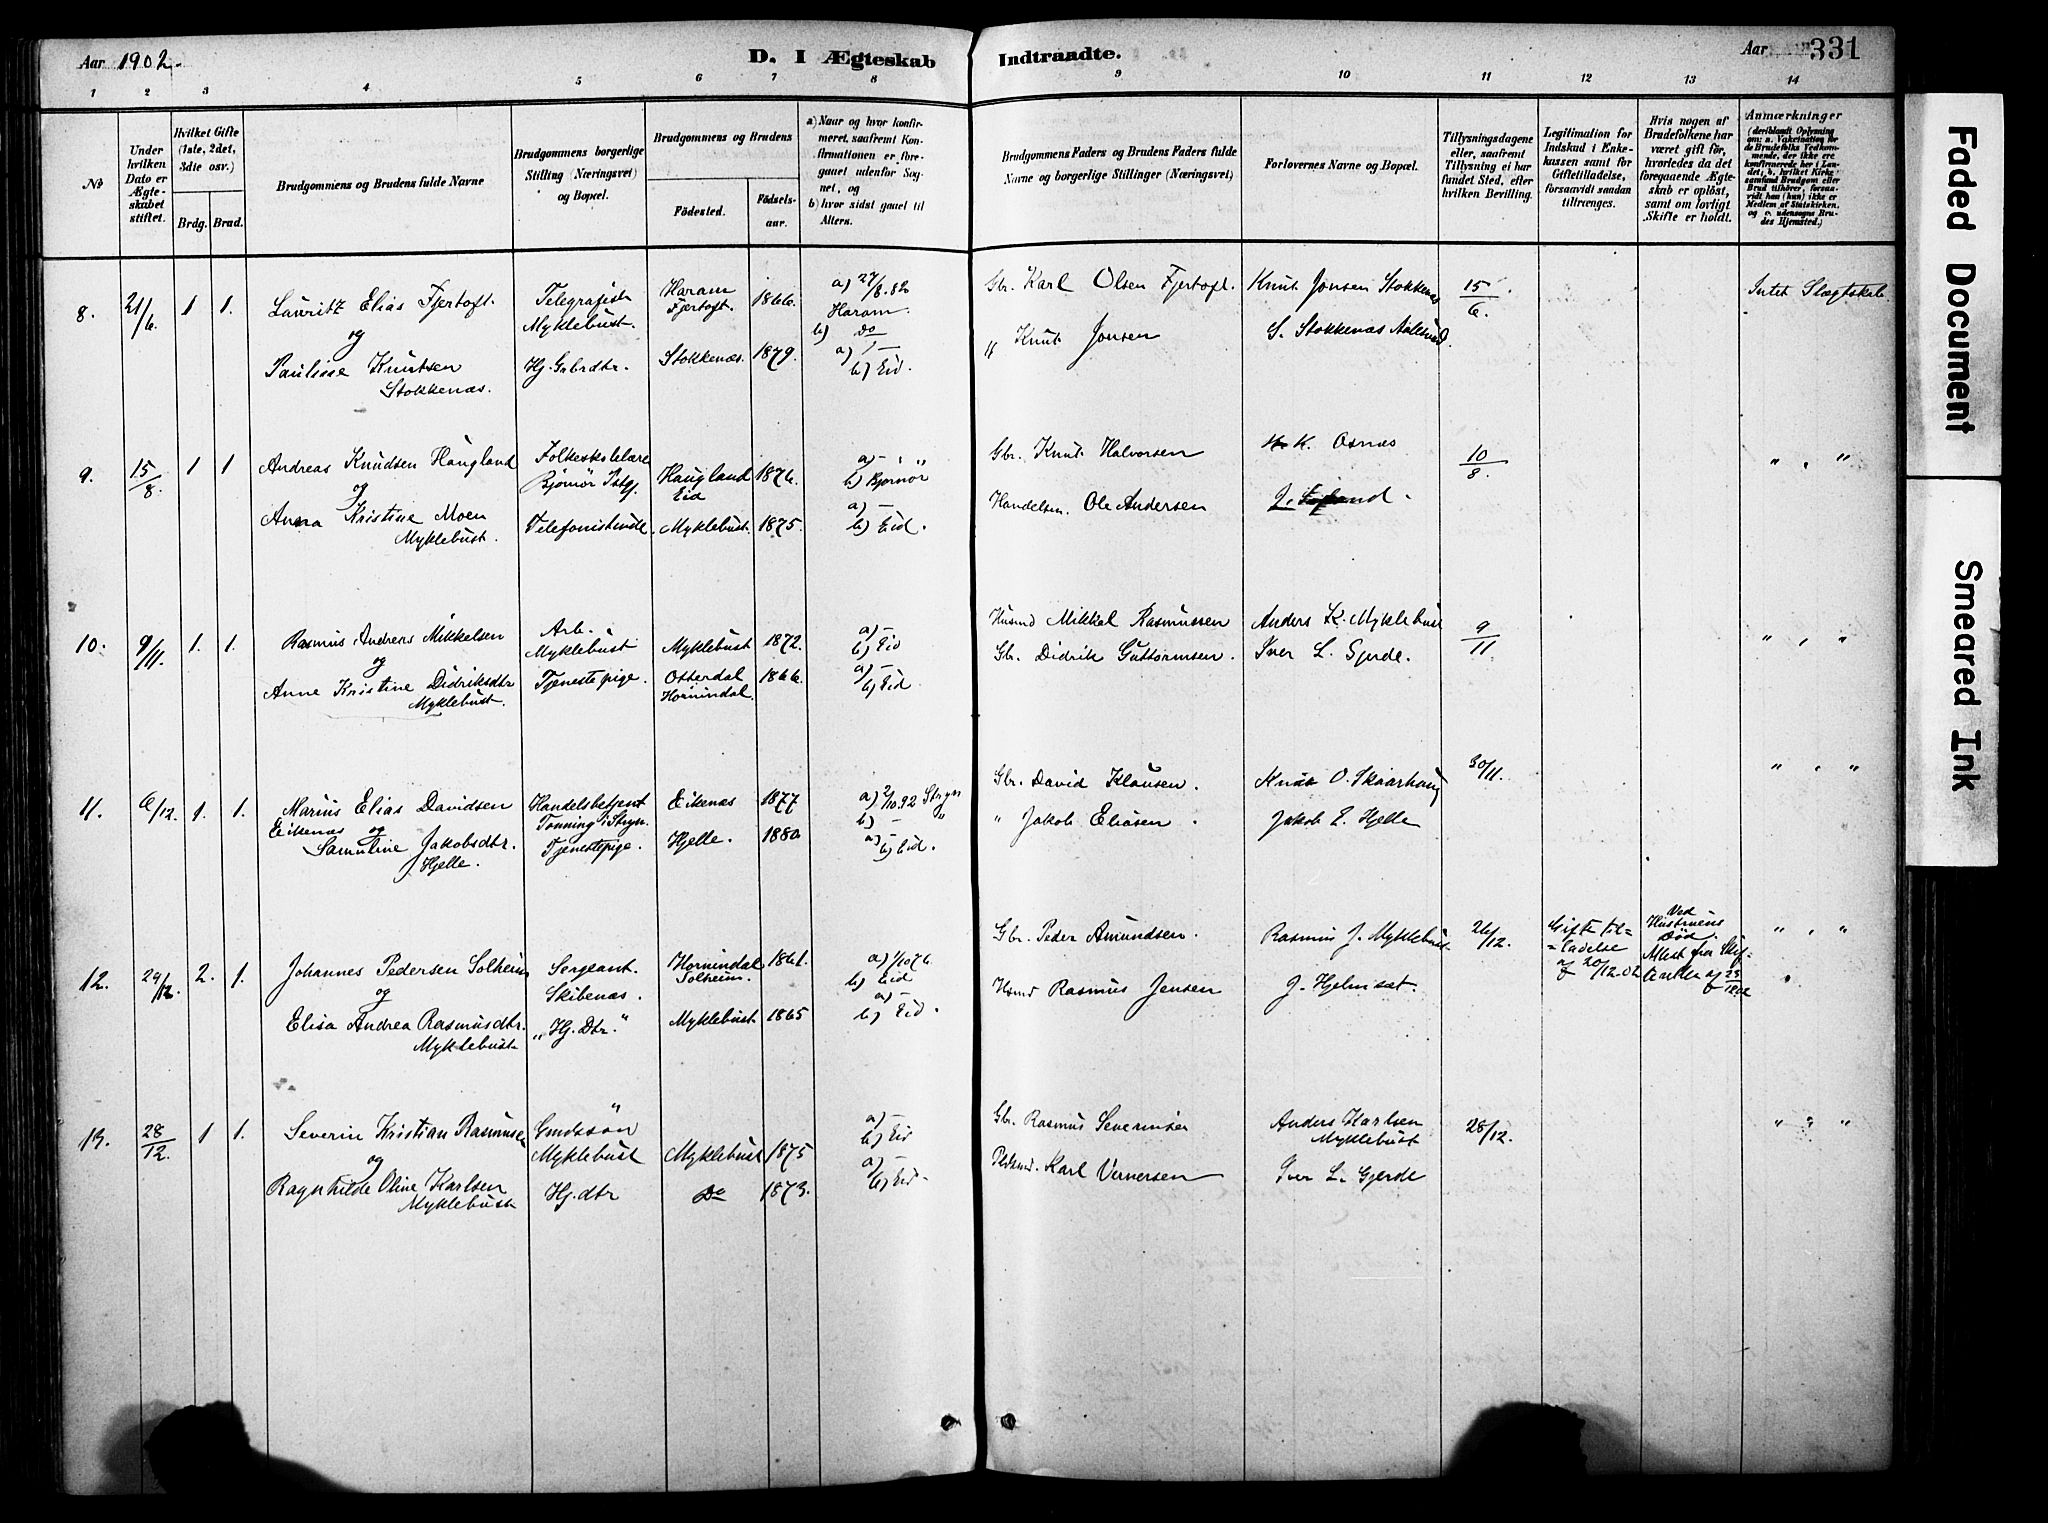 Aar 1902.
D. I Ægteskab Indtraadte.
Aar 331
1 2 3 4 5 6 7 8 9 10 11 12 13 14
No
Under hvilken Dato er Ægteskabet stiftet.
Hvilket Gifte (1ste, 2det, 3die osv.)
Brdg. Brud.
Brudgommens og Brudens fulde Navne
Brudgommens borgerlige Stilling (Næringsvei) og Bopæl.
Brudgommens og Brudens
Födested. Födselsaar.
a) Naar og hvor konfirmeret, saafremt Konfirmationen er foregaaet udenfor Sognet, og
b) hvor sidst gaaet til Alters.
Brudgommens Faders og Brudens Faders fulde Navne og borgerlige Stillinger (Næringsvei)
Forlovernes Navne og Bopæl.
Tillysningsdagene eller, saafremt Tillysning ei har fundet Sted, efter hvilken Bevilling.
Legitimation for Indskud i Enkekassen samt for Giftetilladelse, forsaavidt saadan tiltrænges.
Hvis nogen af Brudefolkene har været gift før, hvorledes da det foregaaende Ægteskab er oplöst, samt om lovligt Skifte er holdt.
Anmærkninger (deriblandt Oplysning om: a. Vakcination for de Brudefolks Vedkommende, der ikke ere konfirmerede her i Landet; b. hvilket Kirkesamfund Brudgom eller Brud tilhörer, forsaavidt han (hun) ikke er Medlem af Statskirken, og c. udensogns Brudes Hjemsted.)
8. 21/6. 1 1. Lauritz Elias Fjertoft. Telegrafist Haram 1866. a) 27/8.82 Gbr. Karl Olsen Fjertoft. Knut Jonsen Stokkenæs 15/6. Intet Slægtskab
og Myklebust. Fjertoft. Haram. b) Do
Pauline Knutsen Hj. Gabrdtr. Stokkenæs. 1879. a) - „ Knut Jonsen S. Stokkenæs Aalesund.
Stokkenæs. b) Eid.
9. 15/8. 1 1 Andreas Knudsen Haugland Folkeskolelærer Haugland 1876. a) - Gbr. Knut Halvorsen K. Osnæs 10/8. „ , „
og Bjørnør Eid b) Bjørnør
Anna Kristine Moen Telefonistinde. Myklebust. 1875. a) - Handelsm. Ole Andersen
Myklebust. b) Eid.
10. 9/11. 1. 1. Rasmus Andreas Mikkelsen Arb. Myklebust 1872. a) - Husmd Mikkel Rasmussen Anders K. Myklebust 9/11 „ , „
og Myklebust b) Eid
Anne Kristine Didriksdtr Tjenestepige. Otterdal 1866. a) - Gbr. Didrik Guttormsen. Iver L. Gjerde.
Myklebust. Hornindal. b) Eid
11. 6/12. 1. 1. Marius Elias Davidsen Handelsbetjent Eikenæs 1877 a) 2/10.92 Stryn Gbr. David Klausen. Knut O. Skaarhaug 30/11. „ , „
Eikenæs og Tonning i Stryn. b) - „
Samuline Jakobsdtr. Tjenestepige. Hjelle. 1880 a) - „ Jakob Eliasen. Jakob E. Hjelle
Hjelle. b) Eid.
12. 29/12. 2. 1. Johannes Pedersen Solheim Sergeant. Hornindal 1861. a) 1/10 76. Gbr. Peder Amundsen. Rasmus J. Myklebust 26/12. Giftetilladelse af 20/12.02 Ved Hustruens Død. Attest fra Skifteretten af „ , „
og Skibenæs. Solheim. b) Eid
Elisa Andrea Rasmusdtr. „ Hj. Dtr. „ Myklebust 1865 a) - Hsmd Rasmus Jensen J. Hjelmset.
Myklebust b) Eid.
13. 28/12. 1 1. Severin Kristian Rasmusen Grndssön Myklebust 1875 a) - Gbr. Rasmus Severinsen Anders Karlsen 28/12. „ , „
og Myklebust b) Eid Myklebust
Ragnhilde Oline Karlsen Hj.dtr Do 1873. a) - Karl Vernersen Iver L. Gjerde
Myklebust b) Eid.
Faded Document
Smeared Ink